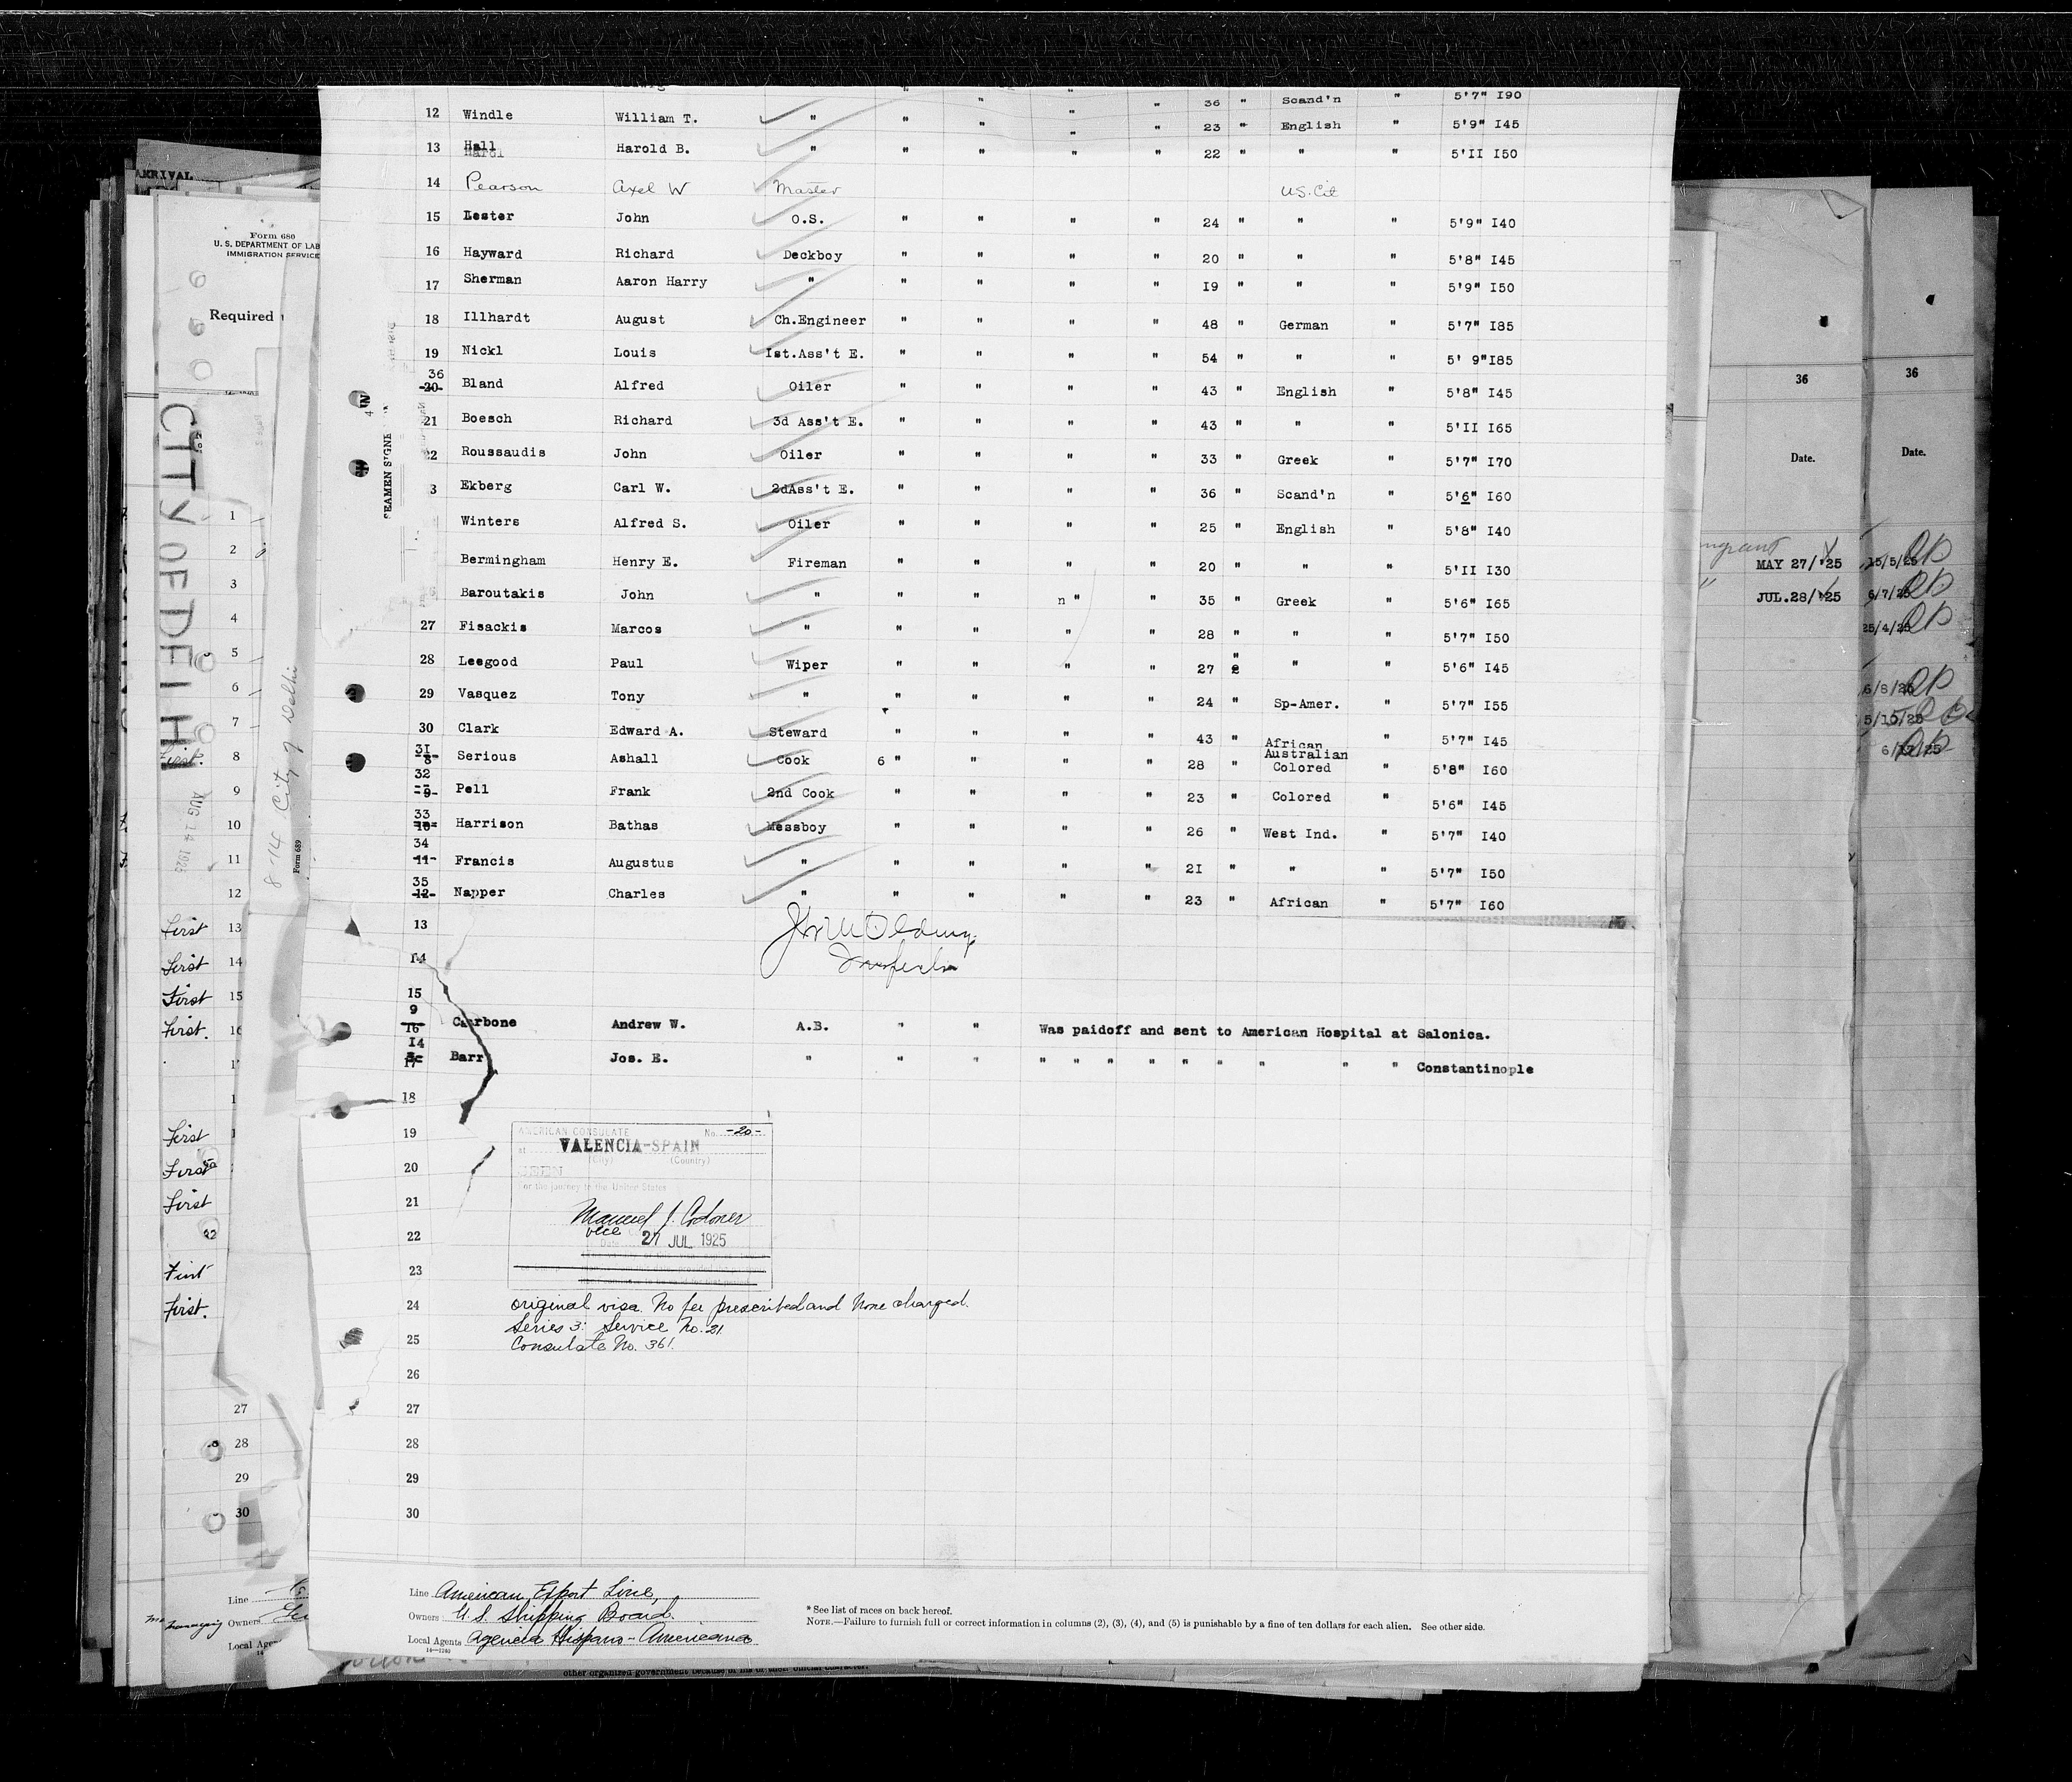 " " " " 36 " Scand'n " 5'7" I90
12 Windle William T. " " " " " 23 " English " 5'9" I45
13 Hall Harold B. " " " " " 22 " " " 5'II I50
14 Pearson Axel W Master U.S. Cit
15 Lester John O.S. " " " " 24 " " " 5'9" I40
16 Hayward Richard Deckboy " " " " 20 " " " 5'8" I45
17 Sherman Aaron Harry " " " " " I9 " " " 5'9" I50
18 Illhardt August Ch.Engineer " " " " 48 " German " 5'7" I85
19 Nickl Louis Ist.Ass't E. " " " " 54 " " " 5' 9" I85
36
20 Bland Alfred Oiler " " " " 43 " English " 5'8" I45
21 Boesch Richard 3d Ass't E. " " " " 43 " " " 5'II I65
22 Roussaudis John Oiler " " " " 33 " Greek " 5'7" I70
3 Ekberg Carl W. 2dAss't E. " " " " 36 " Scand'n " 5'6" I60
Winters Alfred S. Oiler " " " " 25 " English " 5'8" I40
Bermingham Henry E. Fireman " " " " 20 " " " 5'II I30
Baroutakis John " " " n " " 35 " Greek " 5'6" I65
27 Fisackis Marcos " " " " " 28 " " " 5'7" I50
28 Leegood Paul Wiper " " " " 27 " " " 5'6" I45
29 Vasquez Tony " " " " " 24 " Sp-Amer. " 5'7" I55
30 Clark Edward A. Steward " " " " 43 " African " 5'7" I45
31
8 Serious Ashall Cook 6 " " " " 28 " Australian Colored " 5'8" I60
32
9 Pell Frank 2nd Cook " " " " 23 " Colored " 5'6" I45
33
10 Harrison Bathas Messboy " " " " 26 " West Ind. " 5'7" I40
34
11 Francis Augustus " " " " " 2I " " " 5'7" I50
35
12 Napper Charles " " " " " 23 " African " 5'7" I60
13
14
Inspector
15
9
16 Carbone Andrew W. A.B. " " Was paidoff and sent to American Hospital at Salonica.
I4
17 Barr Jos. E. " " " " " " " " " " " " Constantinople
18
19
20
21
22
23
24
25
26
27
28
29
30
AMERICAN CONSULATE No. -20-
at VALENCIA-SPAIN
(City) (Country)
SEEN
For the journey to the United States
Manuel J. Codoner
vice
Date 27 JUL 1925
original visa. No fee prescribed and None charged.
Series 3: Service No. 21
Consulate No. 361.
Line American Export Line,
Owners U.S. Shipping Board.
Local Agents Agencia Hispano-Americana
14—1240
* See list of races on back hereof.
NOTE.—Failure to furnish full or correct information in columns (2), (3), (4), and (5) is punishable by a fine of ten dollars for each alien. See other side.
other organized government because of his or their official character.
SEAMEN SIGNE
ARRIVAL
Form 680
U. S. DEPARTMENT OF LAB
IMMIGRATION SERVICE
Required
CITY OF DELHI
AUG 14 1925
8-14 City of Delhi
Form 689
1
2
3
4
5
6
7
First. 8
9
10
11
12
First 13
First 14
First 15
First. 16
First
First
First
First
First.
27
28
29
30
Line
managing Owners
Local Agen
36
Date.
MAY 27/25
JUL.28/25
36
Date.
15/5/25
6/7/25
25/4/25
6/8/25
5/10/25